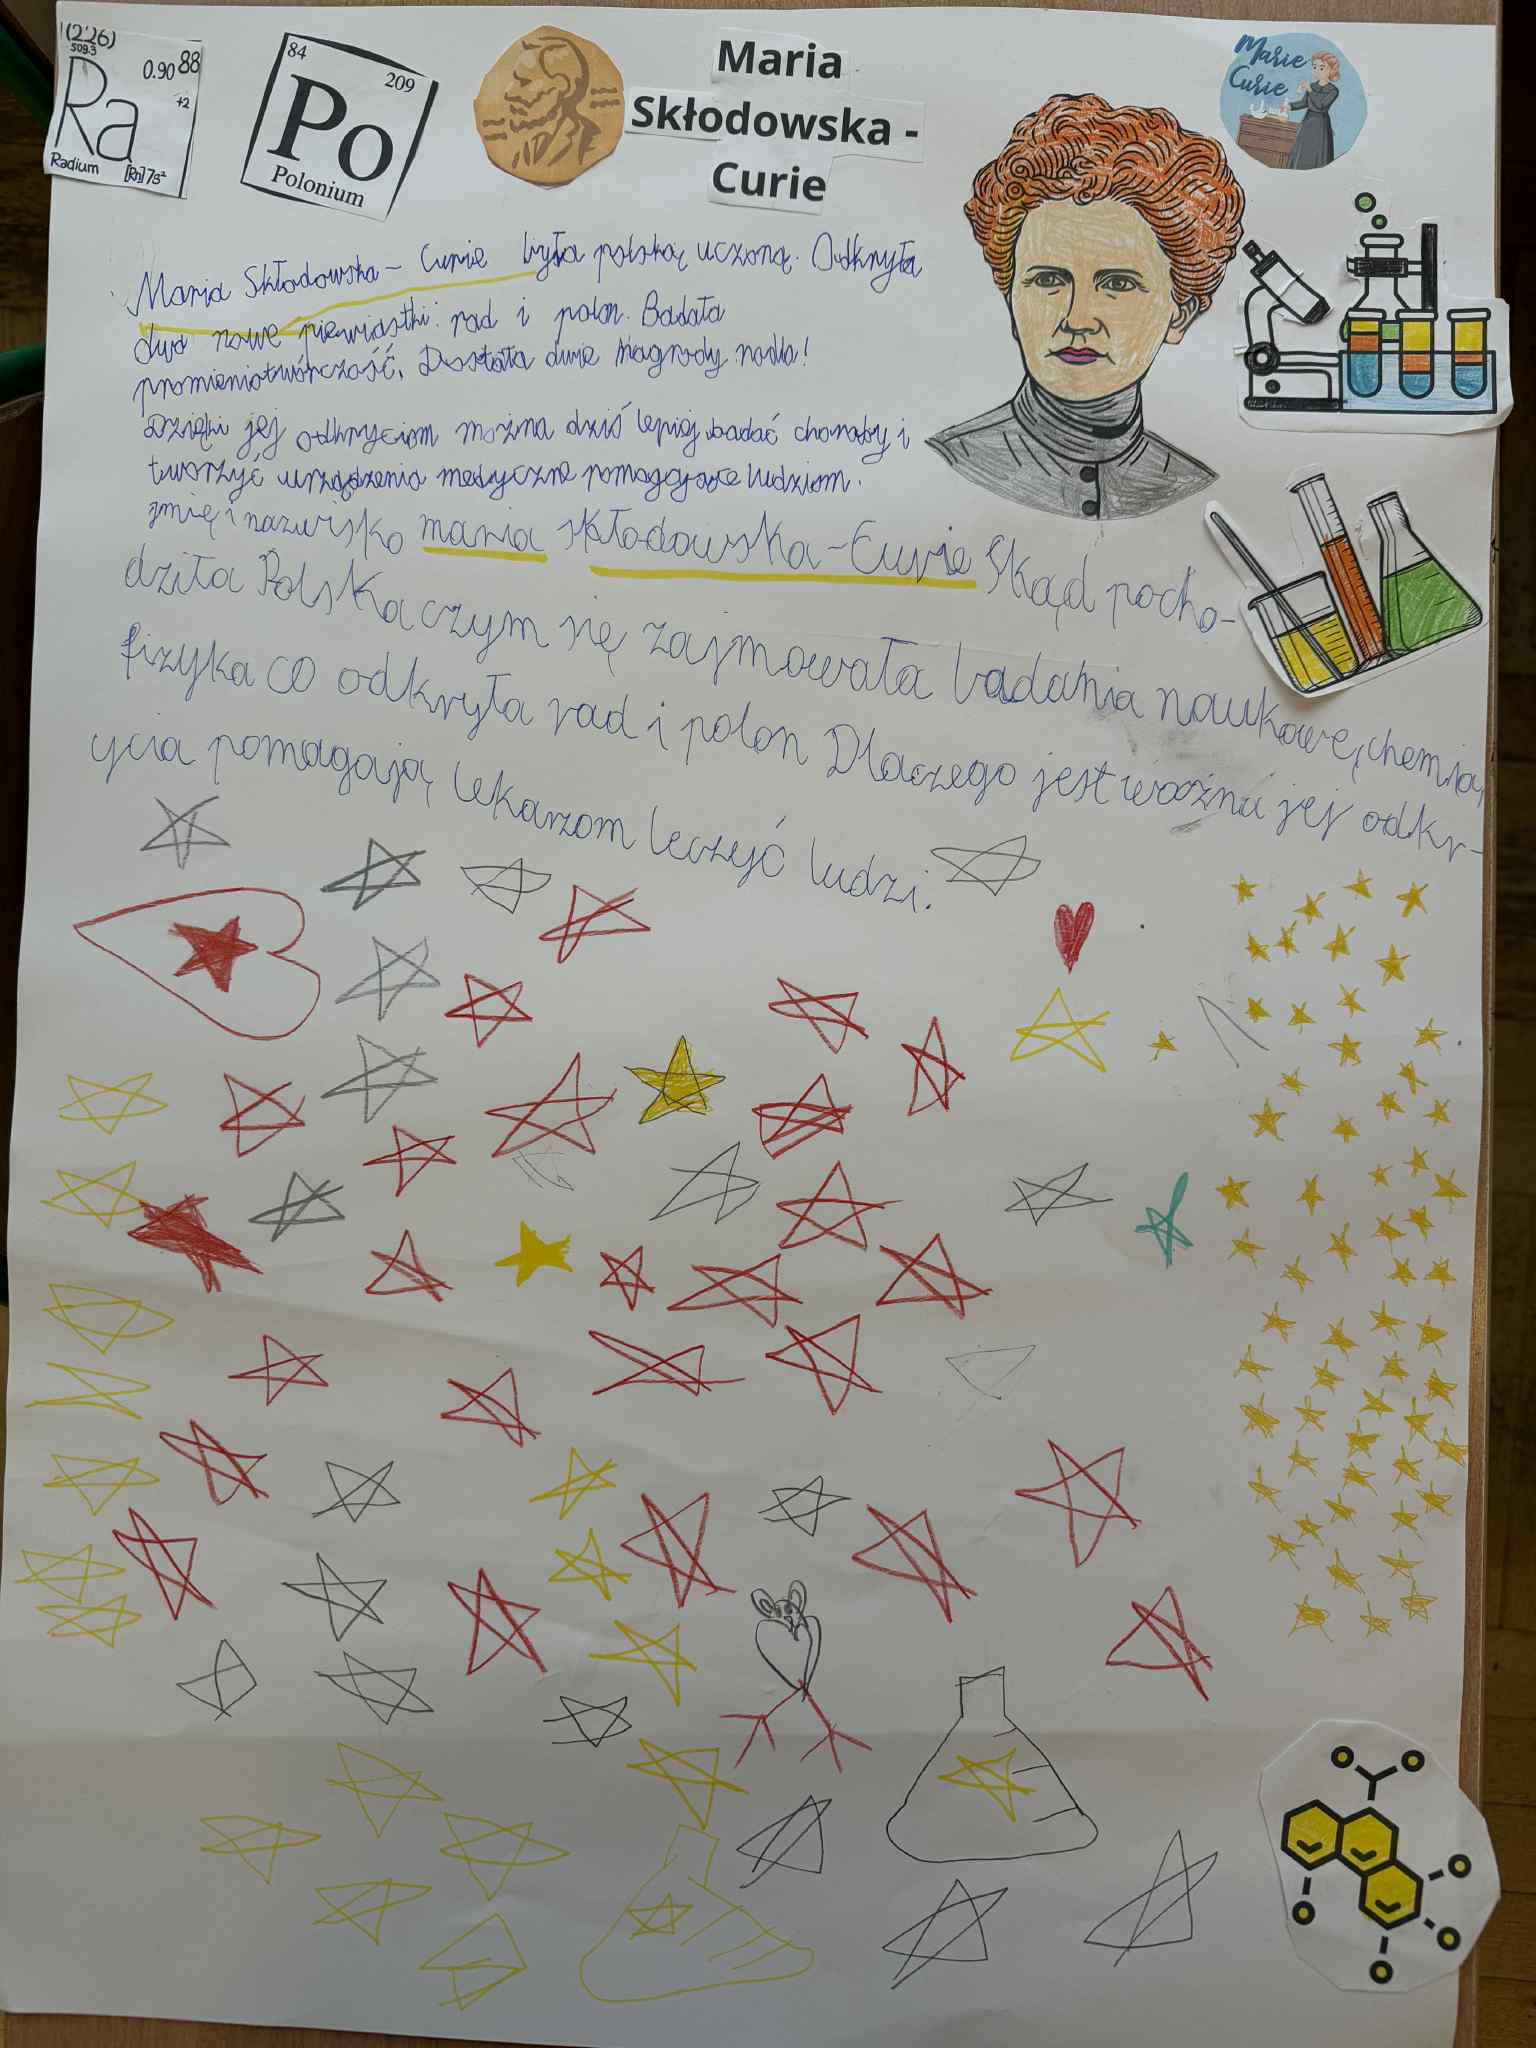 (226)
509.3
0.90 88
+2
Ra
Radium [Rn]7s²
84
209
Po
Polonium
Maria
Skłodowska -
Curie
Marie
Curie
Maria Skłodowska - Curie była polską uczoną. Odkryła
dwa nowe pierwiastki: rad i polon. Badała
promieniotwórczość. Dostała dwie nagrody nobla!
Dzięki jej odkryciom można dziś lepiej badać choroby i
tworzyć urządzenia medyczne pomagające ludziom.
Imię i nazwisko maria skłodowska-Curie Skąd pocho-
dziła Polska czym się zajmowała badania naukowe, chemia,
fizyka co odkryła rad i polon Dlaczego jest ważna jej odkr-
ycia pomagają lekarzom leczyć ludzi.